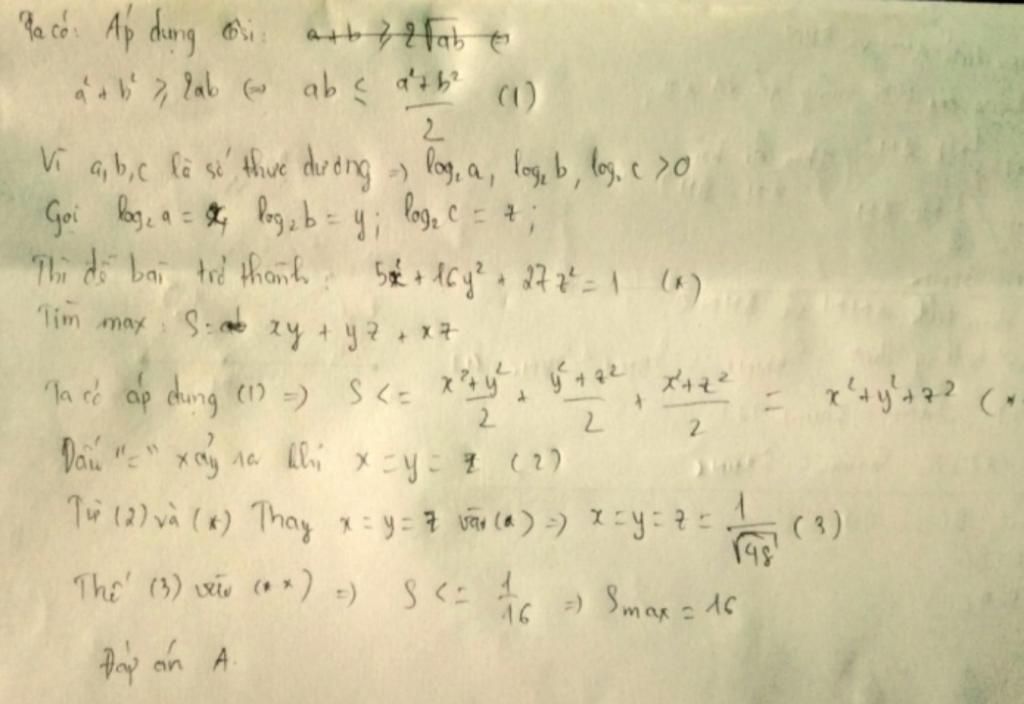 Ta có: Áp dụng Côsi: a+b ≥ 2√ab ⇔
a²+b² ≥ 2ab ⇔ ab ≤ (a²+b²)/2 (1)
Vì a,b,c là số thực dương => log₂a, log₂b, log₂c >0
Gọi log₂a = x, log₂b = y; log₂c = z;
Thì đề bài trở thành: 5x²+16y²+27z²=1 (*)
Tìm max: S= xy + yz + xz
Ta có áp dụng (1) => S <= (x²+y²)/2 + (y²+z²)/2 + (x²+z²)/2 = x²+y²+z² (*
Dấu "=" xảy ra khi x=y=z (2)
Từ (2) và (*) Thay x=y=z vào (*) => x=y=z= 1/√48 (3)
Thế (3) vào (**) => S <= 1/16 => Smax = 16
Đáp án A.